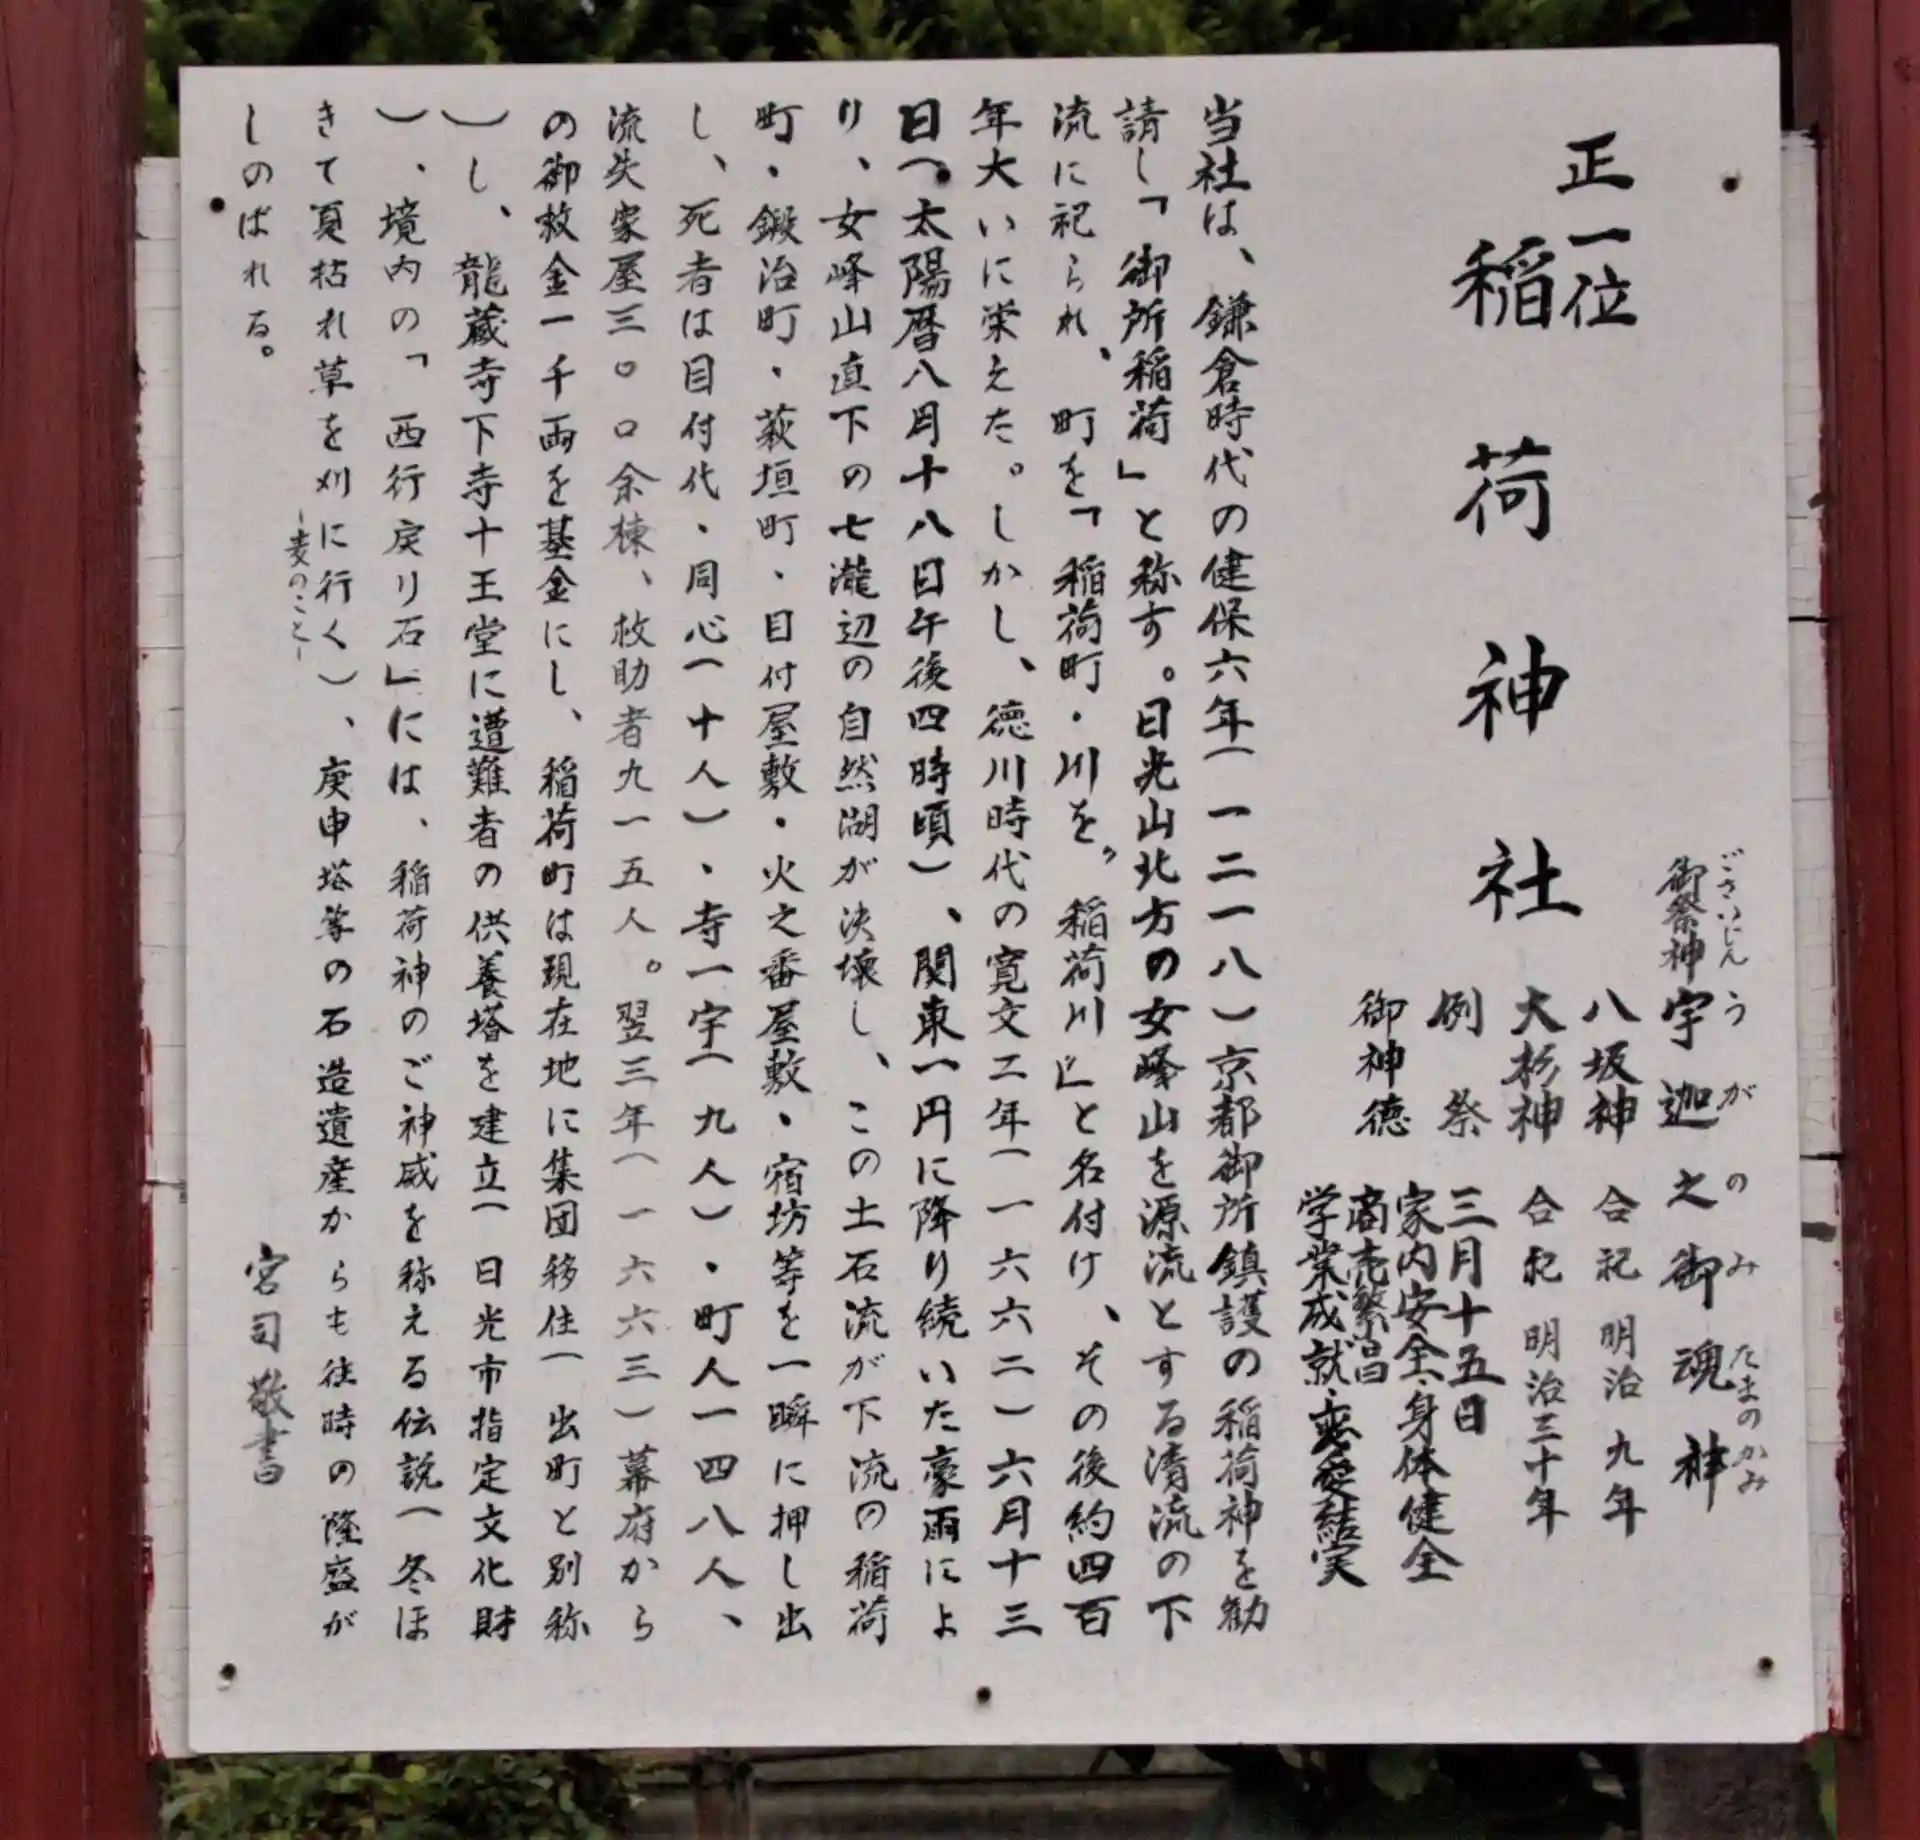 正一位
稲荷神社
御祭神 宇迦之御魂神
ごさいじん うがのみたまのかみ
八坂神 合祀 明治九年
大杉神 合祀 明治三十年
例祭 三月十五日
御神徳 家内安全・身体健全
商売繁昌
学業成就・恋愛結実
当社は、鎌倉時代の健保六年(一二一八)京都御所鎮護の稲荷神を勧
請し「御所稲荷」と称す。日光山北方の女峰山を源流とする清流の下
流に祀られ、町を「稲荷町・川を〝稲荷川」と名付け、その後約四百
年大いに栄えた。しかし、徳川時代の寛文二年(一六六二)六月十三
日(太陽暦八月十八日午後四時頃)、関東一円に降り続いた豪雨によ
り、女峰山直下の七瀧辺の自然湖が決壊し、この土石流が下流の稲荷
町・鍛治町・萩垣町・目付屋敷・火之番屋敷・宿坊等を一瞬に押し出
し、死者は目付代・同心(十人)・寺一宇(九人)・町人一四八人、
流失家屋三〇〇余棟、救助者九一五人。翌三年(一六六三)幕府から
の御救金一千両を基金にし、稲荷町は現在地に集団移住(出町と別称
)し、龍蔵寺下寺十王堂に遭難者の供養塔を建立(日光市指定文化財
)、境内の「西行戻り石」には、稲荷神のご神威を称える伝説(冬ほ
きて夏枯れ草を刈に行く)、庚申塔等の石造遺産からも往時の隆盛が
-麦のこと-
しのばれる。
宮司敬書